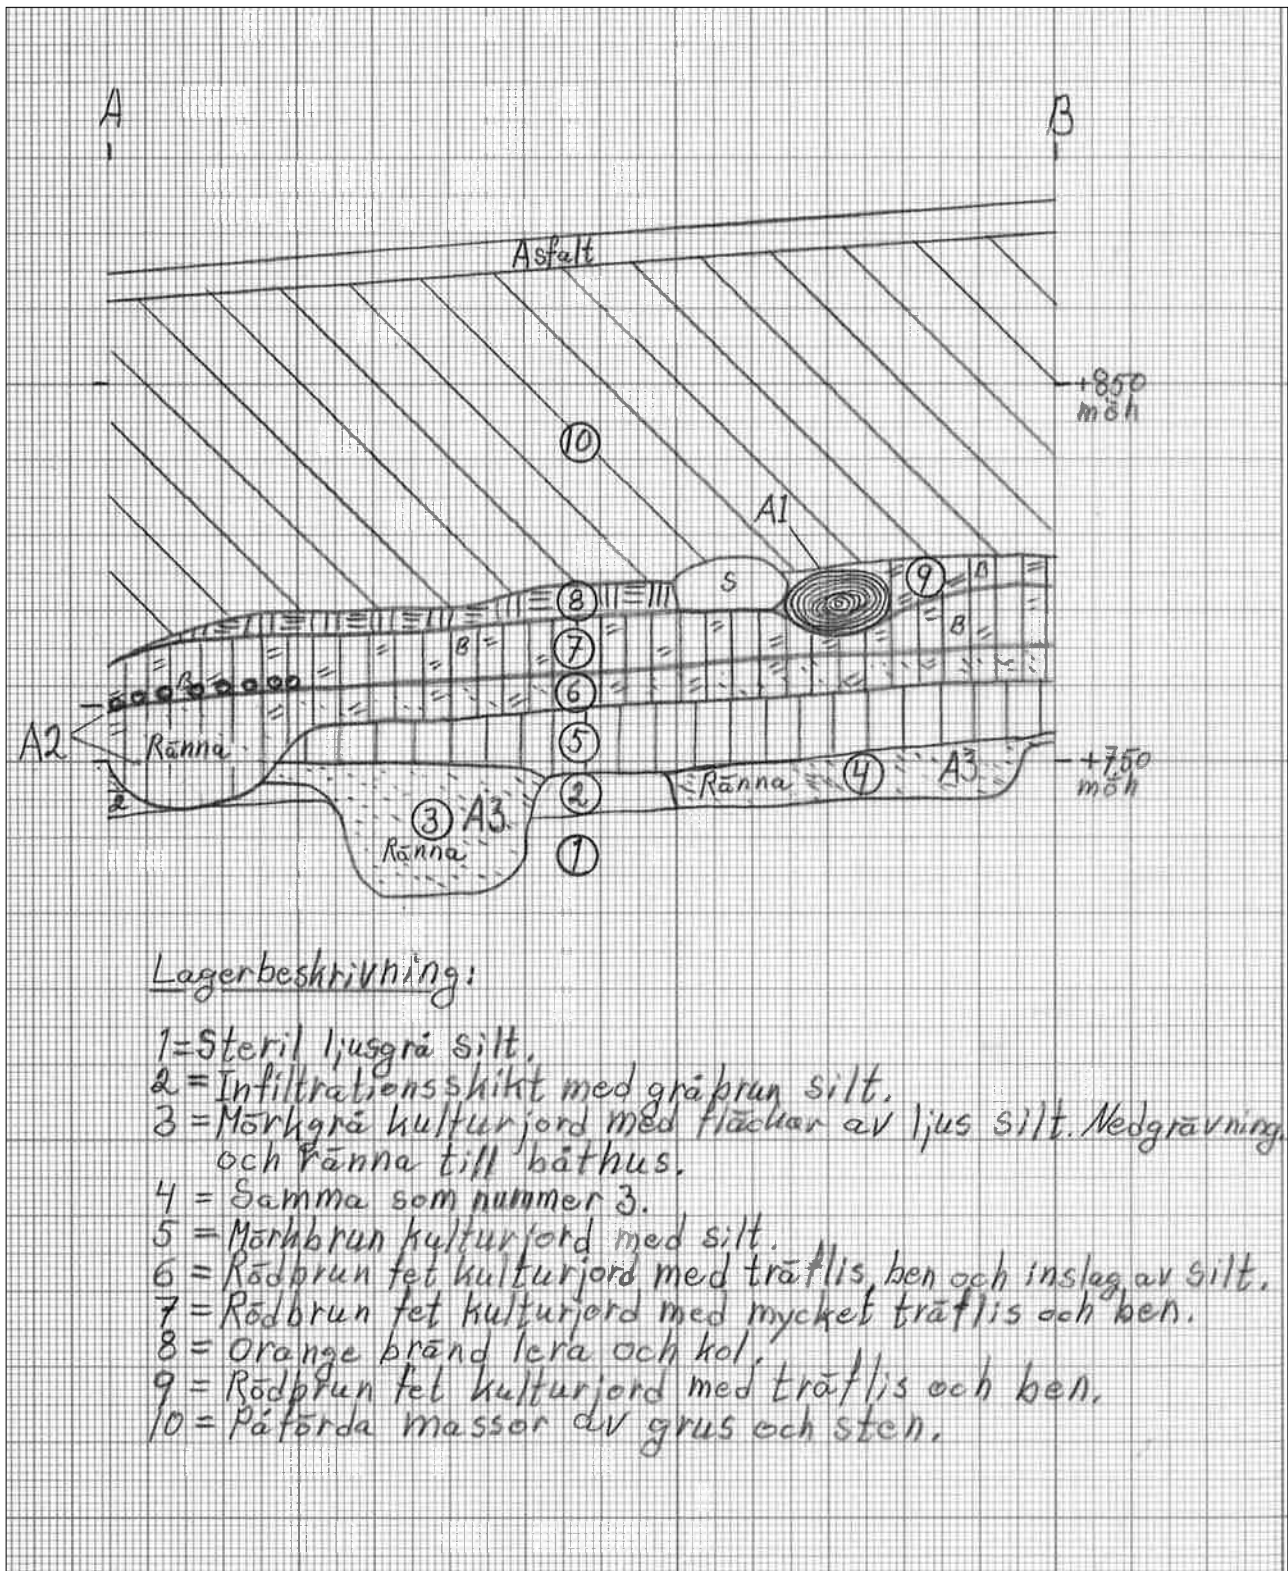 A
B
Asfalt
+850
möh
10
A1
S
9
B
8
B
B
7
B
6
A2
Ränna
5
+750
möh
2
Ränna
4
A3
2
3
A3
Ränna
1
Lagerbeskrivning:
1=Steril ljusgrå silt.
2=Infiltrationsskikt med gråbrun silt.
3=Mörkgrå kulturjord med fläckar av ljus silt. Nedgrävning
och ränna till båthus.
4 = Samma som nummer 3.
5 = Mörkbrun kulturjord med silt.
6 = Rödbrun fet kulturjord med träflis, ben och inslag av silt.
7 = Rödbrun fet kulturjord med mycket träflis och ben.
8 = Orange bränd lera och kol.
9 = Rödbrun fet kulturjord med träflis och ben.
10 = Påförda massor av grus och sten.